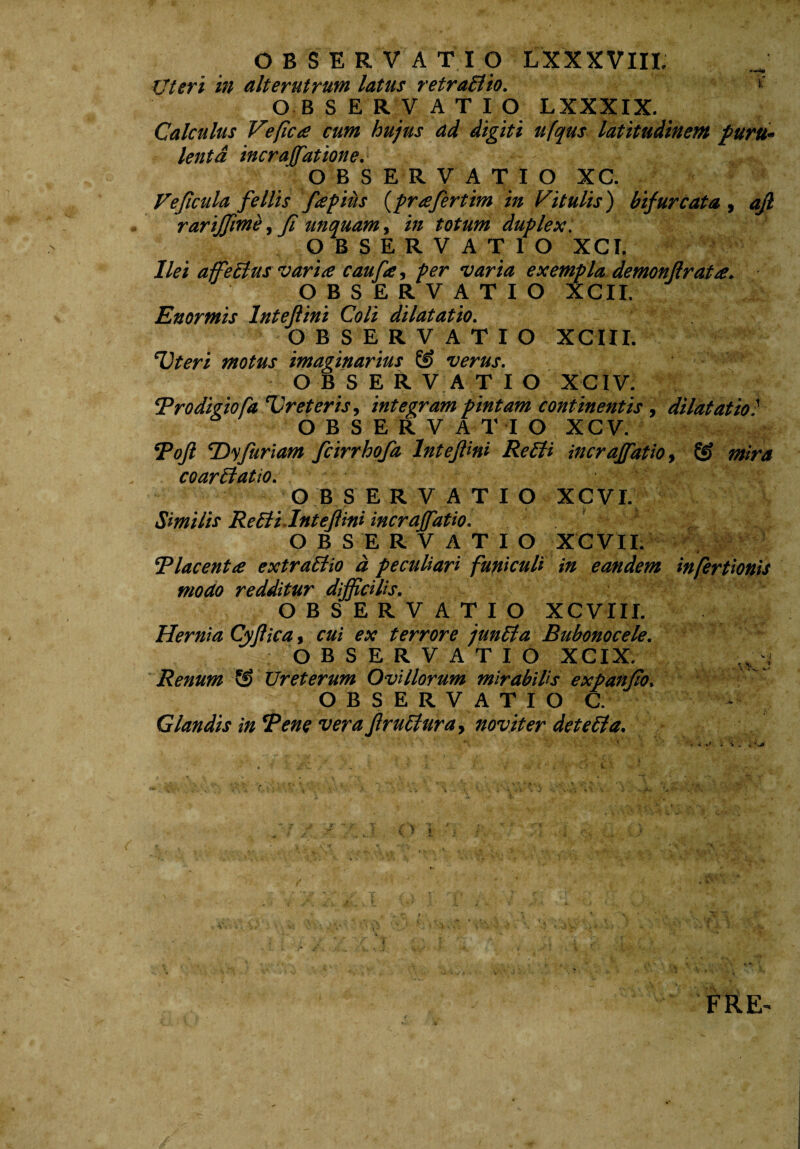 OBSERVATIO LXXXVIII.
Uteri in alterutrum latus retractio.
OBSERVATIO LXXXIX.
Calculus Veſicæ cum hujus ad digiti uſqus latitudinem puru-
lentâ incraſſatione.
OBSERVATIO XC.
Veſicula fellis ſæpiùs (præſertim in Vitulis) bifurcata, aſt
rariſſimè, ſi unquam, in totum duplex.
OBSERVATIO XCI.
Ilei affectus variæ cauſæ, per varia exempla demonſtratæ.
OBSERVATIO XCII.
Enormis Inteſtini Coli dilatatio.
OBSERVATIO XCIII.
Uteri motus imaginarius & verus.
OBSERVATIO XCIV.
Prodigioſa Ureteris, integram pintam continentis, dilatatio.
OBSERVATIO XCV.
Poſt Dyſuriam ſcirrhoſa Inteſtini Recti incraſſatio, & mira
coarctatio.
OBSERVATIO XCVI.
Similis Recti Inteſtini incraſſatio.
OBSERVATIO XCVII.
Placentæ extractio à peculiari funiculi in eandem inſertionis
modo redditur difficilis.
OBSERVATIO XCVIII.
Hernia Cyſtica, cui ex terrore juncta Bubonocele.
OBSERVATIO XCIX.
Renum & Ureterum Ovillorum mirabilis expanſio.
OBSERVATIO C.
Glandis in Pene vera ſtructura, noviter detecta.
FRE-